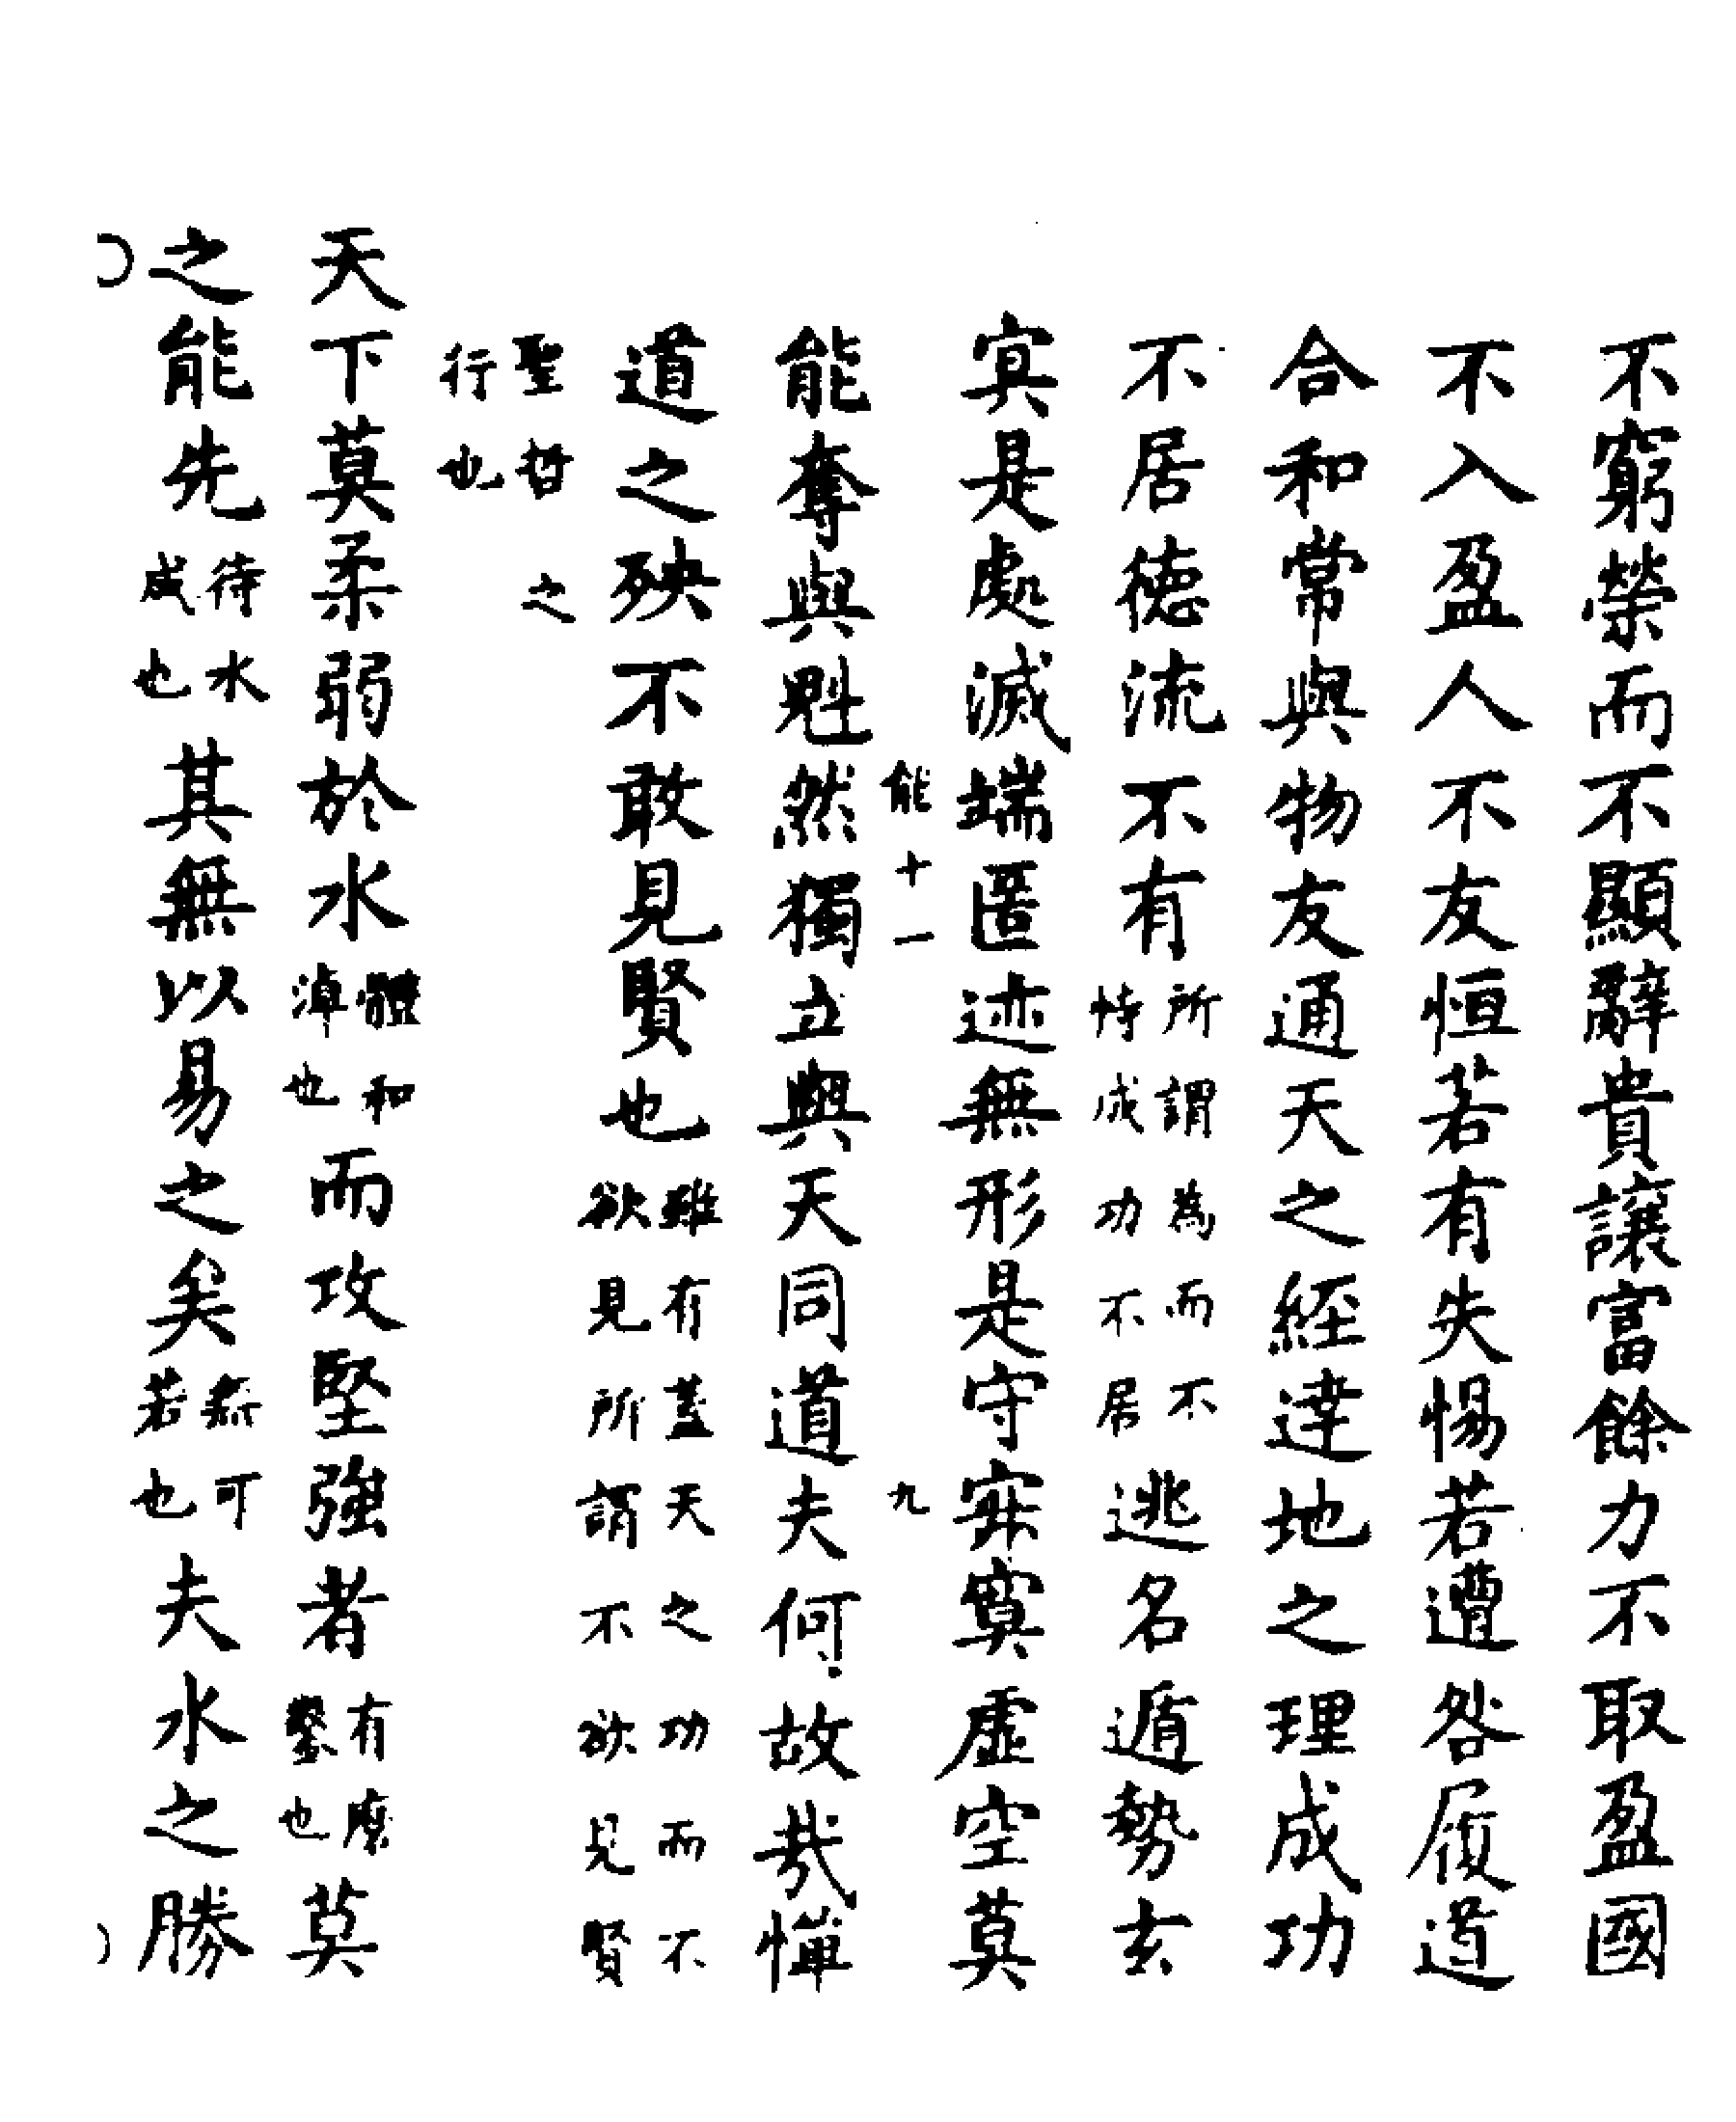 不窮榮而不顯辭貴讓富餘力不取盈國
不入盈人不友恒若有失惕若遭咎履道
合和常與物友通天之經達地之理成功
不居德流不有所謂為而不恃成功不居逃名遁勢玄
寞是處滅端匿迹無形是守寂寞虛空莫
能十一 九
能奪與魁然獨立與天同道夫何故哉憚
道之殃不敢見賢也雖有蓋天之功而不欲見所謂不欲見賢
聖哲之行也
天下莫柔弱於水體和淖也而攻堅強者有磨鑿也莫
之能先待水成也其無以易之矣無可若也夫水之勝